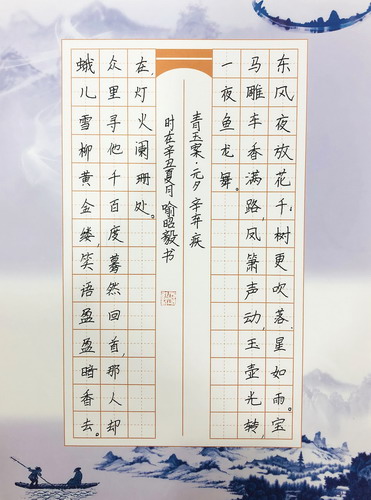 东风夜放花千树更吹落,星如雨。宝
马雕车香满路,凤箫声动,玉壶光转,
一夜鱼龙舞。
蛾儿雪柳黄金缕,笑语盈盈暗香去。
众里寻他千百度蓦然回首,那人却
在,灯火阑珊处。
青玉案·元夕 辛弃疾
时在辛丑夏月 喻昭毅书